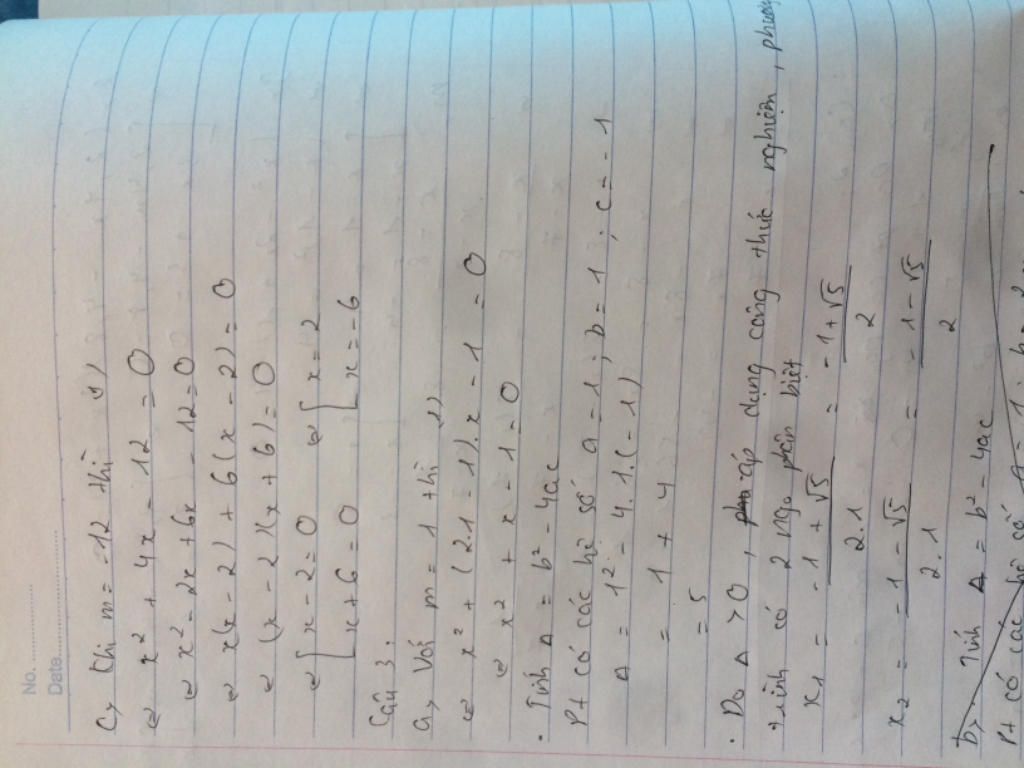 No. ............
Date ......................
c, Khi m = -12 thì (1)
⇔ x² + 4x - 12 = 0
⇔ x² - 2x + 6x - 12 = 0
⇔ x(x - 2) + 6(x - 2) = 0
⇔ (x - 2)(x + 6) = 0
⇔ [ x - 2 = 0 ⇔ [ x = 2
x + 6 = 0 x = -6
Câu 3:
a, Với m = 1 thì (1)
⇔ x² + (2.1 - 1).x - 1 = 0
⇔ x² + x - 1 = 0
. Tính Δ = b² - 4ac
Pt có các hệ số a = 1 ; b = 1 ; c = - 1
Δ = 1² - 4.1.(- 1)
= 1 + 4
= 5
. Do Δ > 0, áp dụng công thức nghiệm, phương
trình có 2 ngo phân biệt
x₁ = -1 + √5 / 2.1 = -1 + √5 / 2
x₂ = -1 - √5 / 2.1 = -1 - √5 / 2
b, Tính Δ = b² - 4ac
Pt có các hệ số